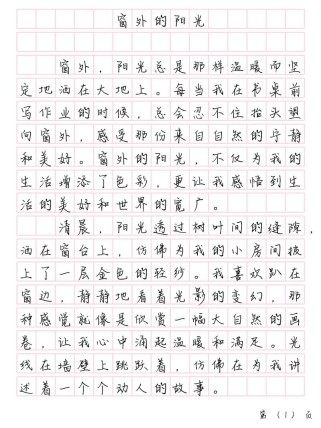 窗外的阳光
窗外，阳光总是那样温暖而坚
定地洒在大地上。每当我在书桌前
写作业的时候，总会忍不住抬头望
向窗外，感受那份来自自然的宁静
和美好。窗外的阳光，不仅为我的
生活增添了色彩，更让我感悟到生
活的美好和世界的宽广。
清晨，阳光透过树叶间的缝隙，
洒在窗台上，仿佛为我的小房间披
上了一层金色的轻纱。我喜欢趴在
窗边，静静地看着光影的变幻，那
种感觉就像是欣赏一幅大自然的画
卷，让我心中涌起温暖和满足。光
线在墙壁上跳跃着，仿佛在为我讲
述着一个个动人的故事。
第（1）页